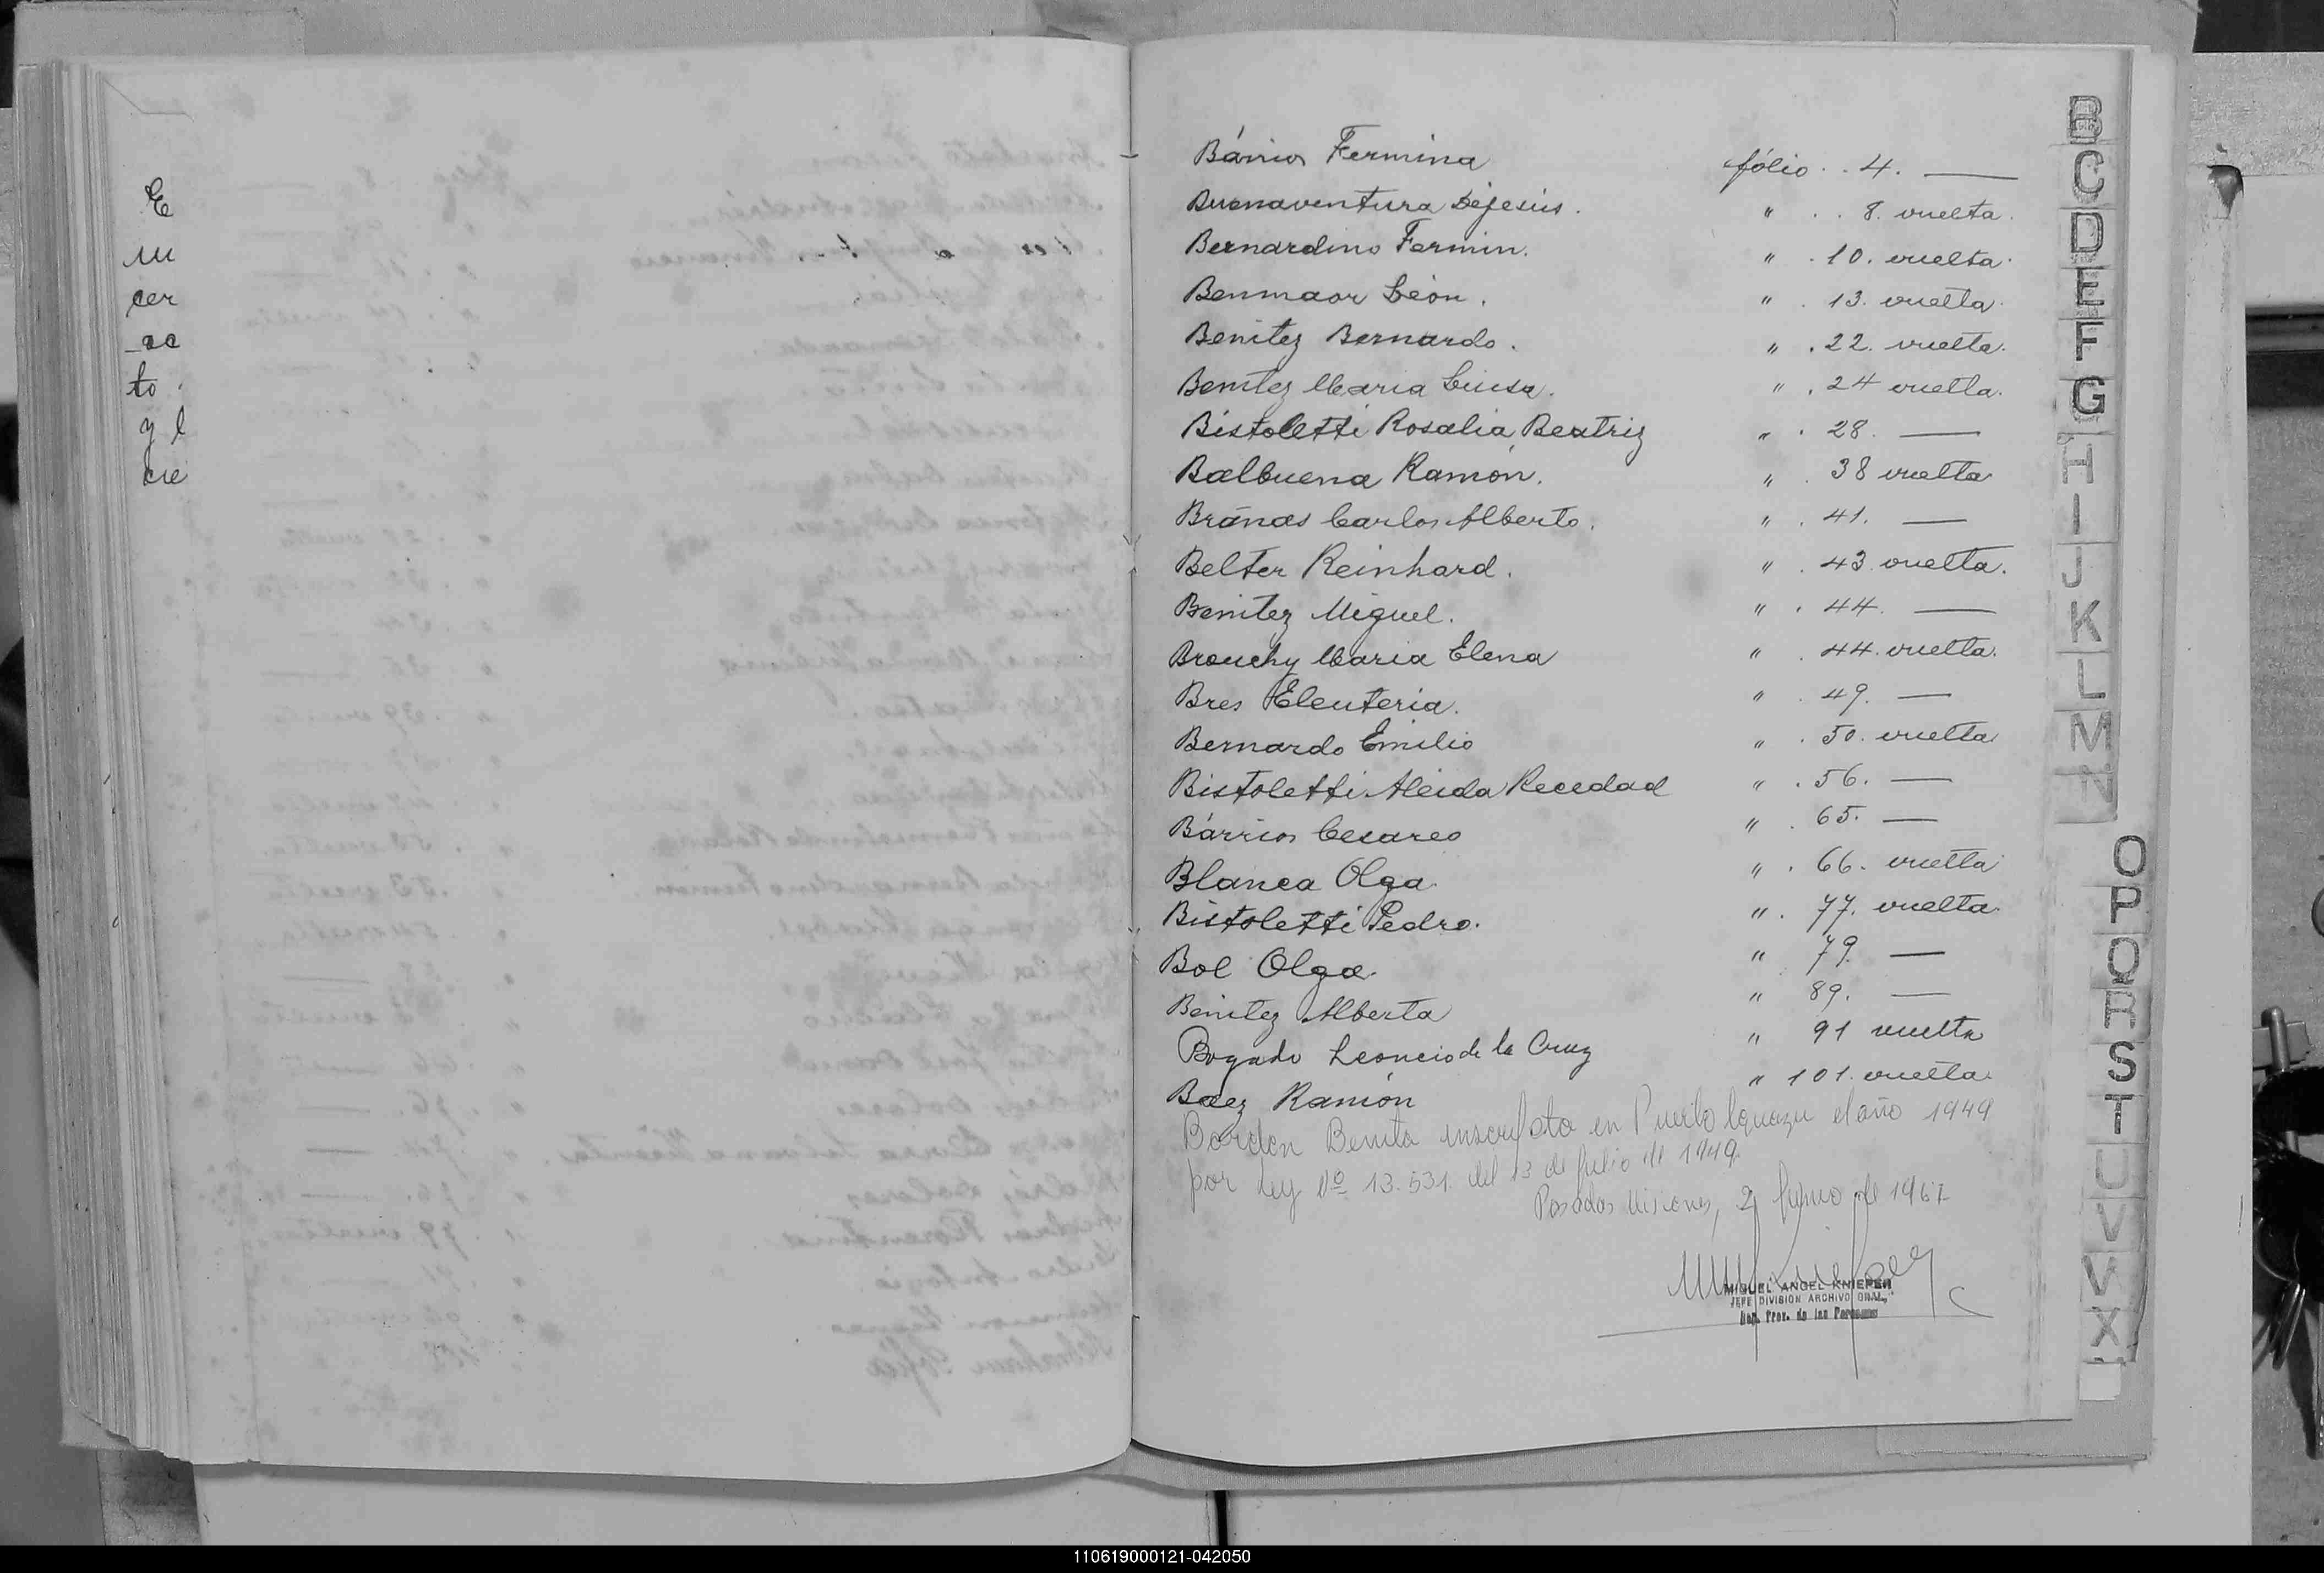 E
cer
to
y l
cie
Bárrios Fermina fólio . . 4. —
Buenaventura Dejesús. " . . 8. vuelta.
Bernardino Fermin. " . 10. vuelta.
Benmaor León. " . 13. vuelta.
Benitez Bernardo. " . 22. vuelta.
Benitez Maria Luisa. " . 24 vuelta.
Bistoletti Rosalia Beatriz " . 28. —
Balbuena Ramón. " . 38 vuelta
Bránas Carlos Alberto. " . 41. —
Belter Reinhard. " . 43 vuelta.
Benitez Miguel. " . 44. —
Brouchy Maria Elena " . 44. vuelta.
Bres Eleuteria. " . 49. —
Bernardo Emilio " . 50. vuelta
Bistoletti Aleida Recedad " . 56. —
Bárrios Cesareo " . 65. —
Blanca Olga. " . 66. vuelta
Bistoletti Pedro. " . 77. vuelta.
Bol Olga. " 79. —
Benitez Alberta " 89. —
Bogado Leoncio de la Cruz " 91 vuelta
Baez Ramón " 101. vuelta.
Bordon Benita inscripta en Puerto Iguazu el año 1949
por Ley Nº 13.531. del 13 de Julio de 1949.
Posadas Misiones, 2 Junio de 1967
MIGUEL ANGEL KNIEPER
JEFE DIVISION ARCHIVO GRAL.
Reg. Prov. de las Personas
B
C
D
E
F
G
H
I
J
K
L
M
N
O
P
Q
R
S
T
U
V
V
X
110619000121-042050